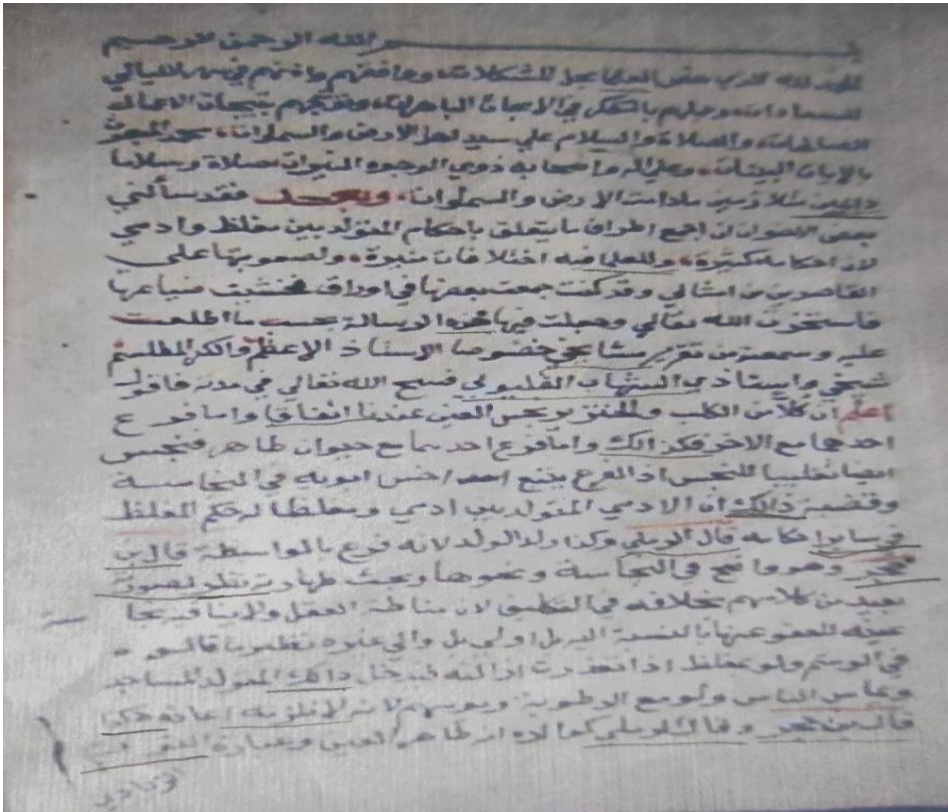 بسم الله الرحمن الرحيم
الحمد لله الذي خص العلما بحل المشكلات، ووافقهم وأعانهم في سهر الليالي
بالتفكر في الاعيان الباهرات، ومنحهم نتيجات الاعمال
الصالحات، والصلاة والسلام على سيد اهل الارض والسموات، محمد المبعوث
بالايات البينات، وعلى اله واصحابه ذوي الوجوه النيرات صلاة وسلاما
دايمين متلازمين مادامت الارض والسموات، وبعد فقد سألني
بعض الاخوان ان اجمع اطراف ما يتعلق باحكام المتولد بين مغلظ وادمي
لان احكامه كثيرة، وللعلما فيه اختلافات منيرة، ولصعوبتها على
القاصرين من امثالي وقد كنت جمعت بعضها في اوراق فخشيت ضياعها
فاستخرت الله تعالى وجعلت فيها هذه الرسالة بحسب ما اطلعت
عليه وسمعته من تقرير مشايخي خصوصا الاستاذ الاعظم والكنز المطلسم
شيخي واستاذي الشهاب القليوبي فسح الله تعالى في مدته فاقول
اعلم ان كلا من الكلب والخنزير نجس العين عندنا اتفاقا واما فرع
احدهما مع الاخر فكذالك واما فرع احدهما مع حيوان طاهر فنجس
ايضا تغليبا للنجس اذ الفرع يتبع اخس ابويه في النجاسة
وقضية ذالك ان الادمي المتولد بين ادمي ومغلظ له حكم المغلظ
في سائر احكامه قال الرملي وكذا ولد الولد لانه فرع بالواسطة قال بن
حجر وهو واضح في النجاسة ونحوها وبحث طهارته نظرا لصورته
بعيد من كلامهم بخلافه في التكليف لان مناطه العقل ولا ينافيه نجاسة
عينه للعفو عنها بالنسبة اليه بل اولى بل والى غيره نظير ما قالوه
في الوشم ولو بمغلظ اذا تعذرت ازالته فيدخل ذالك المتولد المساجد
ويماس الناس ولو مع الرطوبة ويؤمهم لانه لا تلزمه اعادة هكذا
قال بن حجر وقال الرملي كوالده انه طاهر العين وعبارة
الزيادي